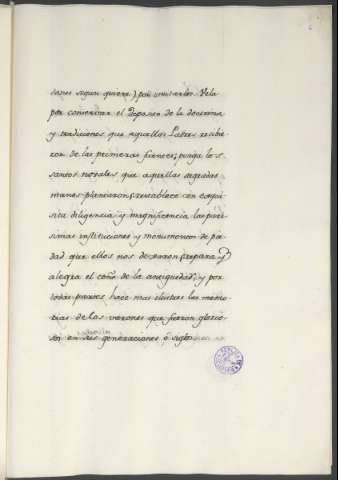 sanos segun quiere) para imitarlos. Vela
por conservar el deposito de la doctrina
y tradiciones, que aquellos Padres recibie-
ron de las primeras fuentes; purga los
santos rosales que aquellas sagradas
manos plantaron; restablece con exqui-
sita diligencia, y magnificencia las pre-
insituciones y monumentos de pie-
dad que ellos nos dexaron; repara y
alegra el de la antiguedad; y por
todas partes, hace mas ilustres las memo-
rias de los varones que fueron glorio-
en sus generaciones, ó siglos